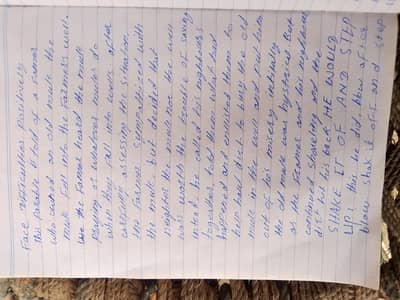 Face difficulties Positively
this parable is told of a farmer
who owned an old mule the
mule fell into the farmer's well.
the farmer heard the mule
Praying or whatever mules do
when they fall into wells after
carefully assessing the situation,
the farmer sympathized with
the mule but decided that
neighter the mule nor the well
was worth the trouble of saving
insted he called his neighbours
together told them what had
happened and enlisted them to
help haul dirt to bury the old
mule in the well and put him
out of his misery initially
the old mule was hysterical But
as the Farmer and his neighbours
continued shoveling and the
dirt hit his back HE WOULD
SHAKE IT OF AND STEP
UP. this he did blow after
blow shak it off and step